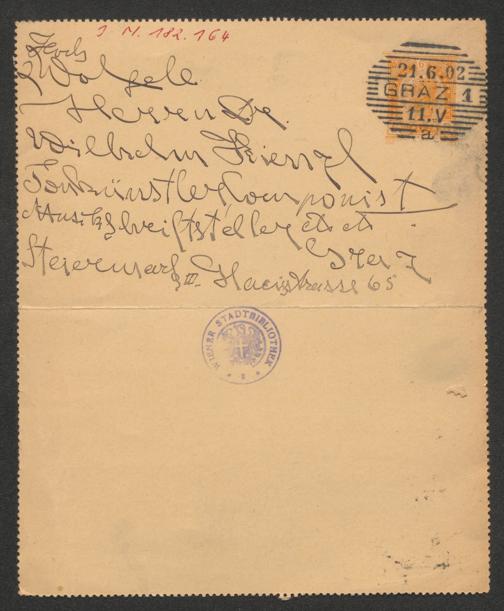 I N. 182.164
Hoch
Wolgeb.
Herrn Dr.
Wilhelm Kienzl
Tonkünstler Componist
Musikschriftsteller etc etc
Graz
Steiermark III. Harrachstrasse 65
21.6.02
GRAZ 1
11.V
a
WIENER STADTBIBLIOTHEK